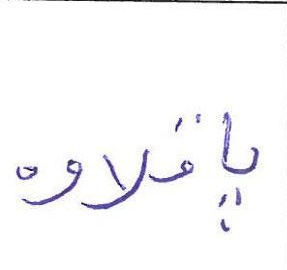 پاقلاوه